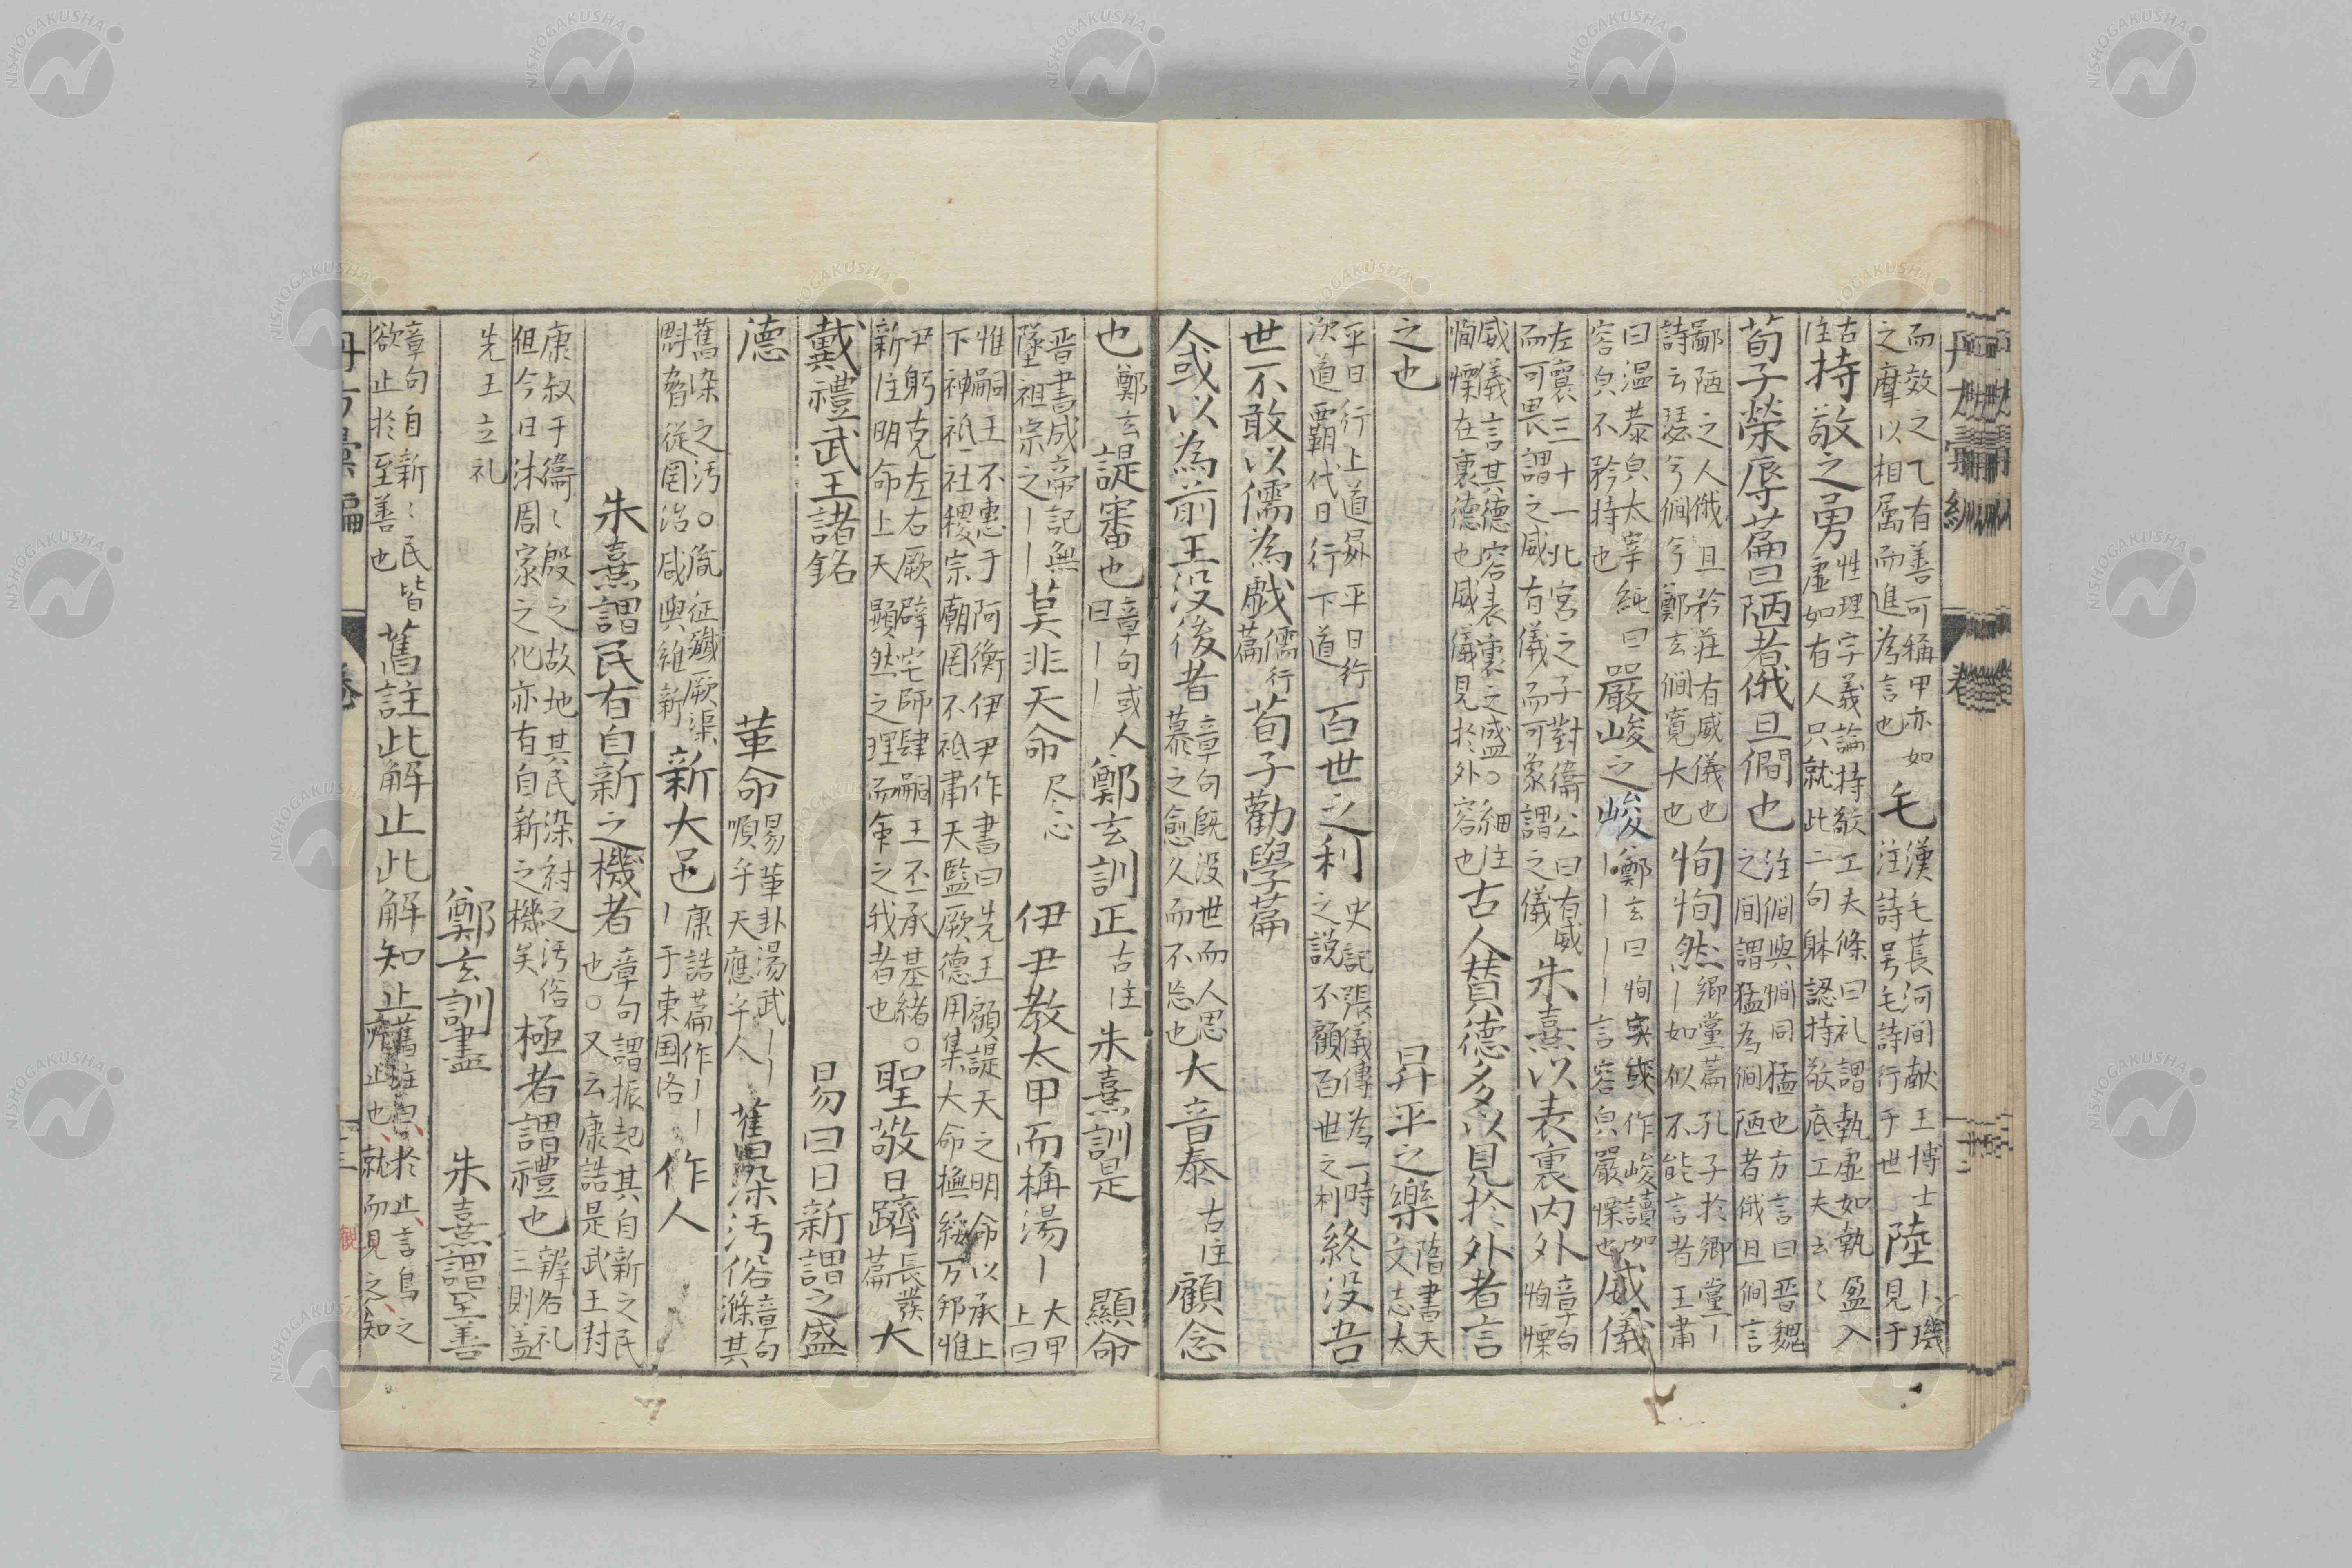 而效之乀有善可稱甲亦如
之摩以相属而進為言也
毛
漢毛萇河间献王博士
注詩号毛詩行于世
陸
璣
見于
古
注
持敬之勇
性理字義論持敬工夫條曰礼謂執虚如執盈入
虚如有人只就此二句躰認持敬底工夫云〻
荀子榮辱篇曰陋者俄且僩也
注僩與憪同猛也方言曰晋魏
之间謂猛為僩陋者俄且僩言
鄙陋之人俄且矜莊有威儀也
詩云瑟兮僩兮鄭玄僩寬大也
恂恂然
鄉黨篇孔子於鄉黨ー
ー如似不能言者王肅
曰温恭皃太宰純曰
容皃不矜持也
嚴峻之峻
鄭玄曰恂字或作峻讀如
ーーーー言容皃嚴慄也
威儀
左襄三十一北宮之子對衛公曰有威
而可畏謂之威有儀而可象謂之儀
朱熹以表裏内外
章句
恂慄
威儀言其德容表裏之盛○細注
恂慄在裏德也威儀見於外容也
古人賛德多以見於外者言
之也
昇平之樂
隋書天
文志太
平日行上道昇平日行
次道覇代日行下道
百世之利
史記張儀傳為一時
之説不顧百世之利
終没吾
世不敢以儒為戯
儒行
篇
荀子勸學篇
人或以為前王没後者
章句既没世而人思
慕之愈久而不忘也
大音泰
古注
顧念
也
鄭玄
諟審也
章句或人
曰ーー
鄭玄訓正
古注
朱熹訓是
顯命
晋書成帝記無
墜祖宗之ーー
莫非天命
尽心
伊尹教太甲而稱湯ー
大甲
上曰
惟嗣王不惠于阿衡伊尹作書曰先王顧諟天之明命以承上
下神祗社稷宗廟罔不祗肅天監厥德用集大命撫綏万邦惟
尹躬克左右厥辟宅師肆嗣王丕承基緒○
新注明命上天顯然之理而命之我者也
聖敬日躋
長發
篇
大
戴禮武王諸銘
易曰日新謂之盛
德
革命
易革卦湯武ーー
順乎天應乎人
舊染汚俗
章句
滌其
舊染之汚○胤征殲厥渠
魁脅從罔治咸與維新
新大邑
康誥篇作ーー
ー于東国洛
作人
朱熹謂民有自新之機者
章句謂振起其自新之民
也○又云康誥是武王封
康叔于衛〻殷之故地其民染紂之汚俗
但今日沐周家之化亦有自新之機矣
極者謂禮也
辨名礼
三則盖
先王立礼
鄭玄訓盡
朱熹謂至善
章句自新〻民皆
欲止於至善也
舊註此解止此解知止
舊註曰於止言鳥之
所止也就而見之知